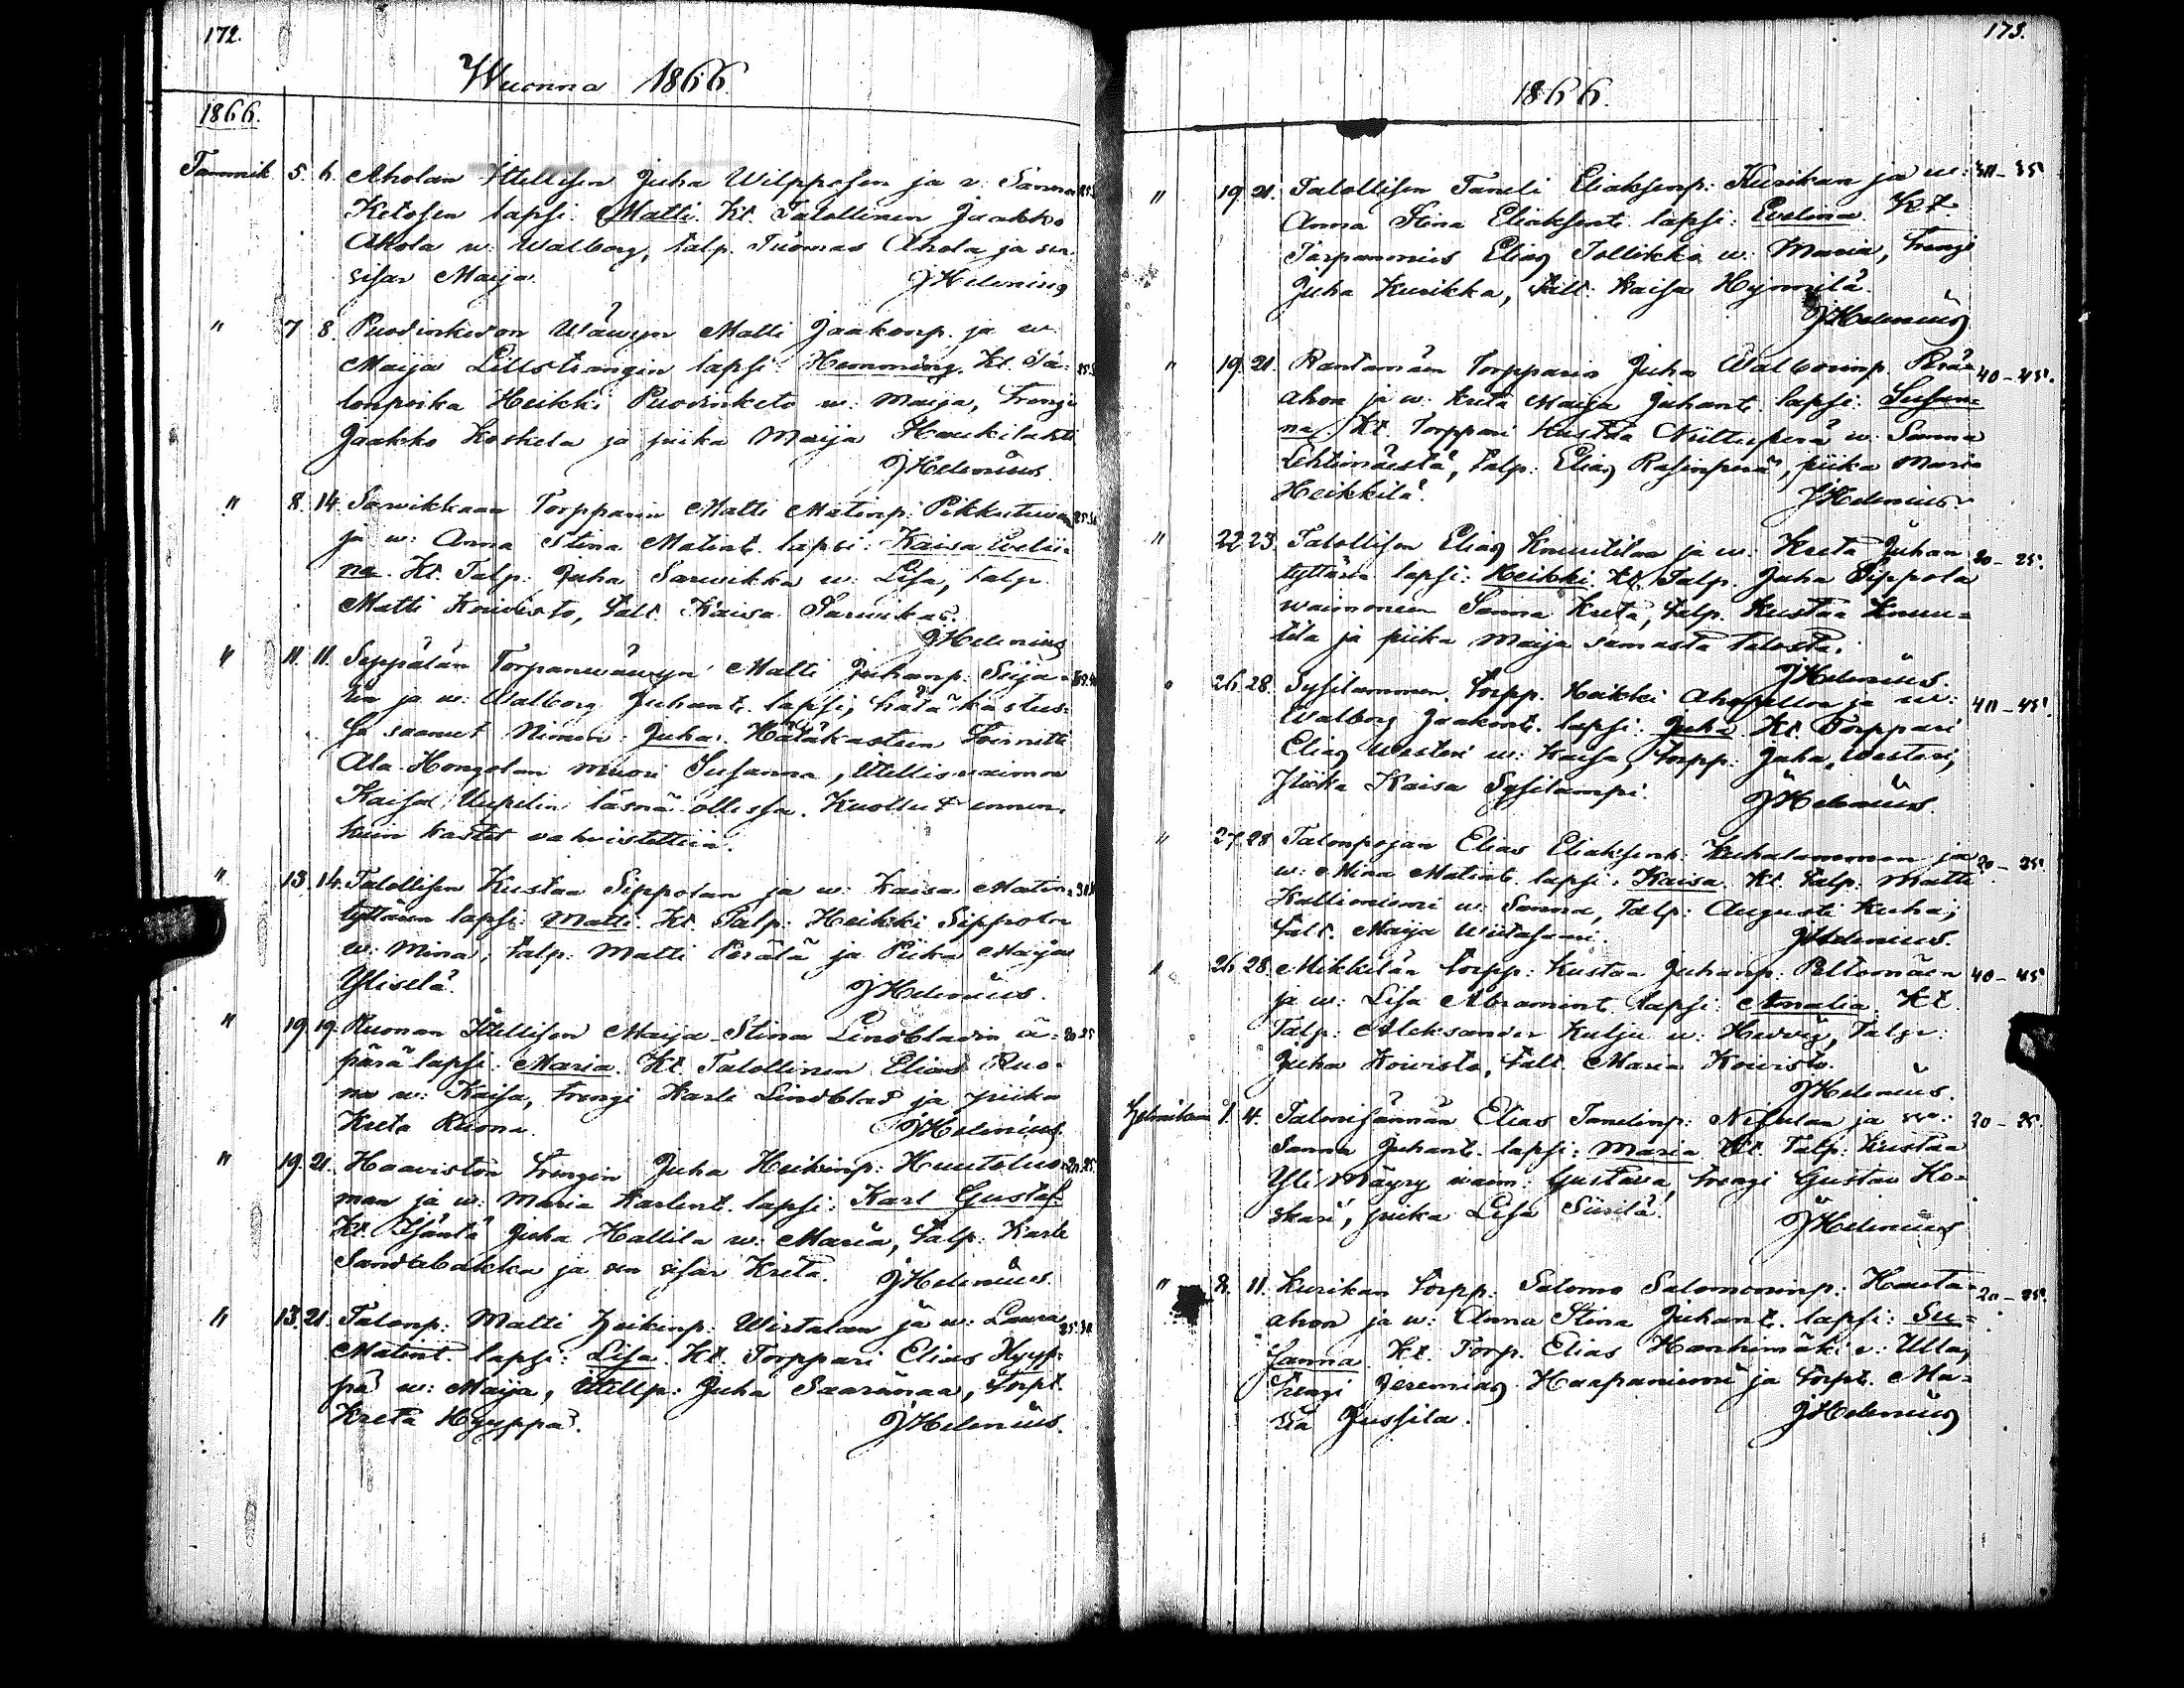 172.
Wuonna 1866.
1866.
Tammik 5. 6. Aholan Itellisen Juha Wilppusen ja v: Sanna
Ketosen lapsi: Matti. Kt. Talollinen Jaakko
Ahola w: Walborg, talp. Tuomas Ahola ja sen
sisar Maija. JHelenius
" 7 8. Puodinkedon Wäwyn Matti Jaakonp. ja w.
Maija Lillstrangin lapsi: Hemming. Kt. Ta-
lonpoika Heikki Puodinketo w: Maija, Trengi
Jaakko Koskela ja piika Maija Haukilahti
JHelenius.
" 8. 14. Sarwikkaan Torpparin Matti Matinp: Pikkutuwan 25.30
ja w: Anna Stina Matint. lapsi: Kaisa Evelii-
na. Kt. Talp: Juha Sarwikka w: Lisa, talp.
Matti Koiwisto, talt. Kaisa Sarwikas.
JHelenius
" 11. 11. Seppälän Torpanwäwyn Matti Juhanp: Seija-
ja w: Walborg Juhant. lapsi, hätäkastees-
sa saanut Nimen: Juha. Hätäkasteen Toimitti
Ala-Hongolan muori Susanna, Itellisvaimon
Kaisa Uupelin läsnä ollessa. Kuollut ennen
kuin kastet vahvistettiin.
" 13. 14. Talollisen Kustaa Sippolan ja w: Kaisa Matin-
tyttären lapsi: Matti. Kt. Talp: Heikki Sippola
w: Mina, talp: Matti Perälä ja Piika Maija
Yliselä. JHelenius.
" 19. 19. Ruonan Itellisen Maija-Stina Lindbladin ä- 20.25
pärälapsi: Maria. Kt. Talollinen Elias Ruo-
na w: Kaisa, trengi Karle Lindblad ja piika
Kreta Ruona. JHelenius.
" 19. 21. Haawiston Trengin Juha Heikinp: Huutoluo- 20.25.
man ja w: Maria Karlent. lapsi: Karl Gustaf.
Kt. Isäntä Juha Hallila w: Maria, talp: Karle
Sandbakka ja sen sisar Kreta. JHelenius.
" 13. 21. Talonp: Matti Heikinp: Wirtalan ja w: Laura 25.30
Matint. lapsi: Lisa. Kt. Torppari Elias Hyyp-
pä w: Maija, Itellp: Juha Saarimaa, torpt.
Kreta Hyyppä. JHelenius.
173.
1866.
" 19. 21. Talollisen Taneli Eliaksenp: Kurikan ja w: 30-35
Anna Stina Eliaksent. lapsi: Evelina. Kt.
Torpanmies Elias Tollikko w: Maria, Trengi
Juha Kurikka, talt: Kaisa Hynnilä.
JHelenius
" 19. 21. Rantamäen Torpparin Juha Walborinp. Perä- 40-45.
ahon ja w: Kreta Maija Juhant. lapsi: Susan-
na. Kt. Torppari Kustaa Niittuperä w: Sanna
Lehtimäestä, talp: Elias Rasinperä, piika Maria
Heikkilä. JHelenius
" 22 23. Talollisen Elias Knuutilan ja w: Kreta Juhan 20-25.
tyttären lapsi: Heikki. Kt. Talp. Juha Sippola
waimoneen Sanna Kreta, talp. Kustaa Knuu-
tila ja piika Maija samasta talosta.
JHelenius.
" 26. 28. Sysilammen torpp. Heikki Ahopellon ja w: 40-45.
Walborg Jaakont. lapsi: Juha. Kt. Torppari
Elias Westeri w: Kaisa, torpp: Juha Westeri,
Piika Kaisa Sysilampi. JHelenius.
" 27. 28 Talonpojan Elias Eliaksenp. Kuhalammen ja 20-25.
w: Mina Matint. lapsi: Kaisa. Kt. talp: Matti
Kallioniemi w: Sanna, Talp: Augusti Kuha;
talt. Maija Wiitasaari. JHelenius.
" 26. 28. Mikkilän torpp: Kustaa Juhanp. Peltomäen 40-45
ja w: Lisa Abramint. lapsi: Amalia. Kt.
Talp: Aleksander Kulju w: Hedvig, Talp:
Juha Koiwisto, talt. Maria Koiwisto.
JHelenius.
Helmikuu 1. 4. Talonisännän Elias Tanelinp: Nisulan ja w: 20-25.
Sanna Juhant. lapsi: Maria. Kt. Talp: Kustaa
Yli Mäyry waim: Gustava, trengi Gustav Ko-
skari, piika Lisa Siirilä. JHelenius
" 2. 11. Kurikan torpp: Salomo Salomoninp: Hauta- 20-25.
ahon ja w: Anna Stina Juhant. lapsi: Su-
sanna. Kt. Torp. Elias Hanhimäki w: Ulla,
Trengi Jeremias Haapaniemi ja torpt. Ma-
ria Jussila. JHelenius